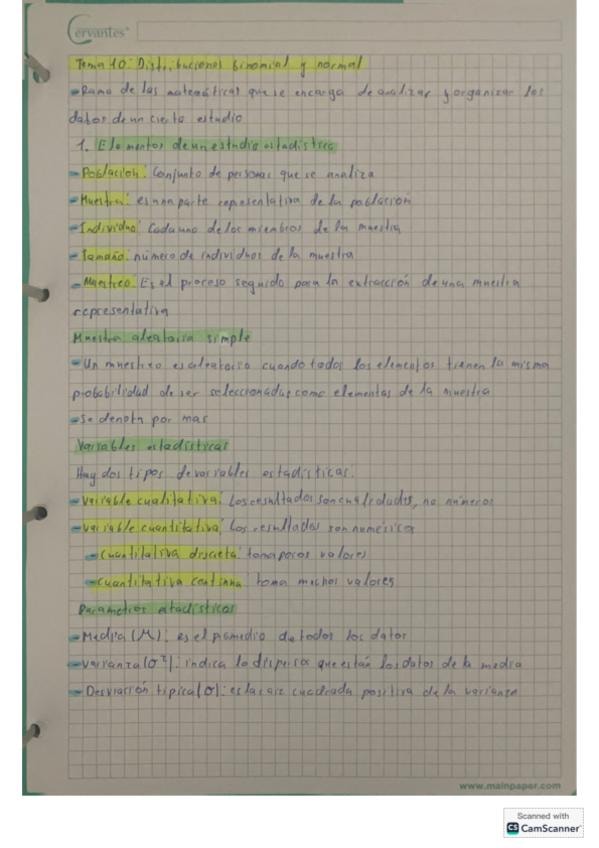 Cervantes
Tema 10: Distribuciones binomial y normal
- Rama de las matemáticas que se encarga de analizar y organizar los
datos de un cierto estudio
1. Elementos de un estudio estadístico
- Población: Conjunto de personas que se analiza
- Muestra: es una parte representativa de la población
- Individuo: Cada uno de los miembros de la muestra
- Tamaño: número de individuos de la muestra
- Muestreo: Es el proceso seguido para la extracción de una muestra
representativa
Muestra aleatoria simple
- Un muestreo es aleatorio cuando todos los elementos tienen la misma
probabilidad de ser seleccionados como elementos de la muestra
- Se denota por mas
Variables estadísticas
Hay dos tipos de variables estadísticas:
- Variable cualitativa: Los resultados son cualidades, no números
- Variable cuantitativa: Los resultados son numéricos
- Cuantitativa discreta: toma pocos valores
- Cuantitativa continua toma muchos valores
Parametros estadísticos
- Media (M): es el promedio de todos los datos
- Varianza (σ²): indica lo disperso que están los datos de la media
- Desviación típica (σ): es la raiz cuadrada positiva de la varianza
www.mainpaper.com
Scanned with
CS CamScanner